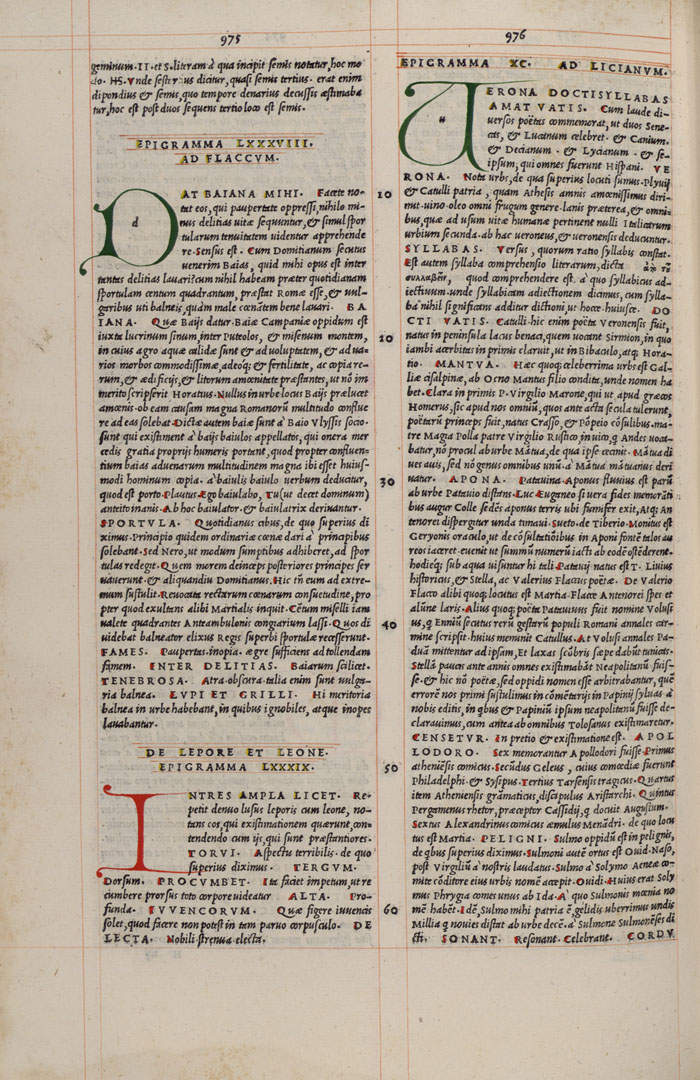 975
geminum·II·et S·literam à qua incipit semis notatur, hoc mo
do· HS·Vnde sestertius dicitur, quasi semis tertius· erat enim
dipondius & semis, quo tempore denarius decussis æstimaba
tur, hoc est post duos sequens tertio loco est semis·
EPIGRAMMA LXXXVIII·
AD FLACCVM·
d
DAT BAIANA MIHI· Facete no-
tat eos, qui paupertate oppressi, nihilo mi-
nus delitias uitæ sequuntur, & simul spor
tularum tenuitatem uidentur apprehende
re·Sensus est· Cum Domitianum secutus
uenerim Baias, quid mihi opus est inter
tantas delitias lauari? cum nihil habeam præter quotidianam
sportulam centum quadrantum, præstat Romæ esse, & uul-
garibus uti balneis, quàm male cœnātem bene lauari· BA
IANA· Quæ Baijs datur·Baiæ Campaniæ oppidum est
iuxta lucrinum sinum, inter Puteolos, & misenum montem,
in cuius agro aquæ calidæ sunt & ad uoluptatem, & ad ua-
rios morbos commodissimæ, adeoq; & fertilitate, ac copia re-
rum, & ædificijs, & litorum amœnitate præstantes, ut nō im
merito scripserit Horatius·Nullus in urbe locus Baijs prælucet
amœnis·ob eam causam magna Romanorū multitudo conflue
re ad eas solebat·Dictæ autem baiæ sunt à Baio Vlyssis socio·
sunt qui existiment à baijs baiulos appellatos, qui onera mer
cedis gratia proprijs humeris portant, quod propter confluen-
tium baias aduenarum multitudinem magna ibi esset huius-
modi hominum copia· à baiulis baiulo uerbum deducitur,
quod est porto·Plautus·Ego baiulabo, Tu (ut decet dominum)
anteito inanis·Ab hoc baiulator·& baiulatrix deriuantur·
SPORTVLA· Quotidianus cibus, de quo superius di
ximus·Principio quidem ordinariæ cœnæ dari à principibus
solebant·Sed Nero, ut modum sumptibus adhiberet, ad spor
tulas redegit·Quem morem deinceps posteriores principes ser
uauerunt·& aliquandiu Domitianus·Hic tn̄ eum ad extre-
mum sustulit·Reuocata rectarum cœnarum consuetudine, pro
pter quod exultans alibi Martialis inquit·Cētum miselli iam
ualete quadrantes Anteambulonis congiarium lassi·Quos di
uidebat balneator elixus Regis superbi sportulæ recesserunt·
FAMES· Paupertas·inopia· ægre sufficiens ad tollendam
famem· INTER DELITIAS· Baiarum scilicet·
TENEBROSA· Atra·obscura·talia enim sunt uulga-
ria balnea· LVPI ET GRILLI· Hi meritoria
balnea in urbe habebant, in quibus ignobiles, atque inopes
lauabantur·
DE LEPORE ET LEONE·
EPIGRAMMA LXXXIX·
INTRES AMPLA LICET· Re-
petit denuo lusus leporis cum leone, no-
tans eos, qui existimationem quærunt, con-
tendendo cum ijs, qui sunt præstantiores·
TORVI· Aspectu terribilis· de quo
superius diximus· TERGVM·
Dorsum· PROCVMBET· Ita faciet impetum, ut re
cumbere prorsus toto corpore uideatur· ALTA· Pro-
funda· IVVENCORVM· Quæ figere iuuencis
solet, quod facere non potest in tam paruo corpusculo· DE
LECTA· Nobili·strenua·electa·
10
10
30
40
50
60
976
EPIGRAMMA XC· AD LICIANVM·
u
VERONA DOCTI SYLLABAS
AMAT VATIS· Cum laude di-
uersos poëtas commemorat, ut duos Sene-
cas, & Lucanum celebret· & Canium·
& Decianum· & Lycianum· & se-
ipsum, qui omnes fuerunt Hispani· VE
RONA· Nota urbs, de qua superius locuti sumus·Plynij
& Catulli patria, quam Athesis amnis amœnissimus diri-
mit·uino·oleo omni frugum genere·lanis præterea, & omni-
bus, quæ ad usum uitæ humanæ pertinent nulli Italicarum
urbium secunda·ab hac ueroneus, & ueronensis deducuntur·
SYLLABAS· Versus, quorum ratio syllabis constat·
Est autem syllaba comprehensio literarum, dicta ἀπὸ τοῦ
συλλαβεῖν, quod comprehendere est· à quo syllabicus ad-
iectiuum·unde syllabicam adiectionem dicimus, cum sylla-
ba nihil significans additur dictioni, ut hocce·huiusce· DO
CTI VATIS· Catulli·hic enim poëta Veronensis fuit,
natus in peninsula lacus benaci, quem uocant Sirmion, in quo
iambi acerbitas in primis claruit, ut in Bibaculo, atq; Hora-
tio· MANTVA· Hæc quoq; celeberrima urbs est Gal-
liæ cisalpinæ, ab Ocno Mantus filio condita, unde nomen ha
bet·Clara in primis P·Virgilio Marone, qui ut apud græcos
Homerus, sic apud nos omniū, quos ante acta secula tulerunt,
poëtarū princeps fuit, natus Crasso, & Pōpeio cōsulibus·ma-
tre Magia Polla patre Virgilio Rustico in uico, q Andes uoca-
batur, nō procul ab urbe Mātua, de qua ipse cecinit· Mātua di
ues auis, sed nō genus omnibus unū· à Mātua mātuanus deri
uatur· APONA· Patauina·Aponus fluuius est parū
ab urbe Patauio distans·Luc·Euganeo si uera fides memorāti
bus augur Colle sedēs aponus terris ubi fumifer exit, Atq; An
tenorei dispergitur unda timaui·Sueto·de Tiberio·Monitus est
Geryonis oraculo, ut de cōsultatiōibus in Aponi fontē talos au
reos iaceret·euenit ut summū numerū iacti ab eodē ostēderent·
hodieq; sub aqua uisuntur hi tali·Patauij natus est T· Liuius
historicus, & Stella, ac Valerius Flaccus poëtæ· De Valerio
Flacco alibi quoq; locutus est Martia·Flacce Antenorei spes et
alūne laris·Alius quoq; poëta Patauinus fuit nomine Volusi
us, q Enniū secutus rerū gestarū populi Romani annales car-
mine scripsit·huius meminit Catullus·At Volusi annales Pa-
duā mittentur ad ipsam, Et laxas scōbris sæpe dabūt tunicas·
Stellā paucis ante annis omnes existimabāt Neapolitanū fuis-
se·& hic nō poëtæ, sed oppidi nomen esse arbitrabantur, quē
errorē nos primi sustulimus in cōmētarijs in Papinij syluas à
nobis editis, in qbus & Papiniū ipsum neapolitanū fuisse de-
clarauimus, cum antea ab omnibus Tolosanus existimaretur·
CENSETVR· In pretio & existimatione est· APOL
LODORO· Sex memorantur Apollodori fuisse·Primus
atheniēsis comicus·Secūdus Geleus, cuius comœdiæ fuerunt
Philadelphi·& Sysipus·Tertius Tarsensis tragicus·Quartus
item Atheniensis grāmaticus, discipulus Aristarchi· Quintus
Pergamenus rhetor, præceptor Cassidij, q docuit Augustum·
Sextus Alexandrinus comicus æmulus Menādri· de quo locu
tus est Martia· PELIGNI· Sulmo oppidū est in pelignis,
de qbus superius diximus·Sulmoni autē ortus est Ouid·Naso,
post Virgiliū à nostris laudatus·Sulmo à Solymo Aeneæ co-
mite cōditore eius urbis nomē accepit·Ouidi·Huius erat Soly
mus Phrygia comes unus ab Ida·A quo Sulmonis mœnia no
mē habēt·Idē, Sulmo mihi patria ē gelidis uberrimus undis
Millia q nouies distat ab urbe decē· à Sulmone Sulmonēses di
cti· SONANT· Resonant·Celebrant· CORDV